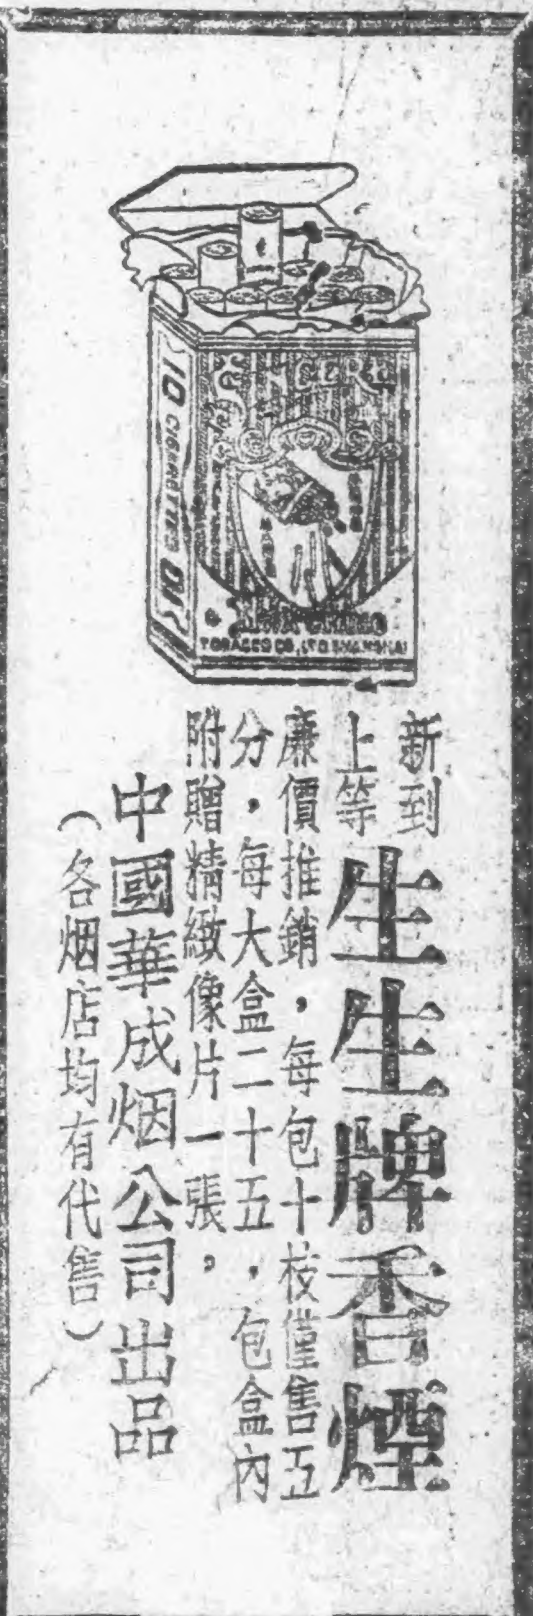 10 CIGARETTES 10
SINCERE
TOBACCO CO., LTD. SHANGHAI
新到
上等
生生牌香煙
廉價推銷,每包十枝僅售五
分,每大盒二十五,包盒內
附贈精緻像片一張。
中國華成烟公司出品
(各烟店均有代售)